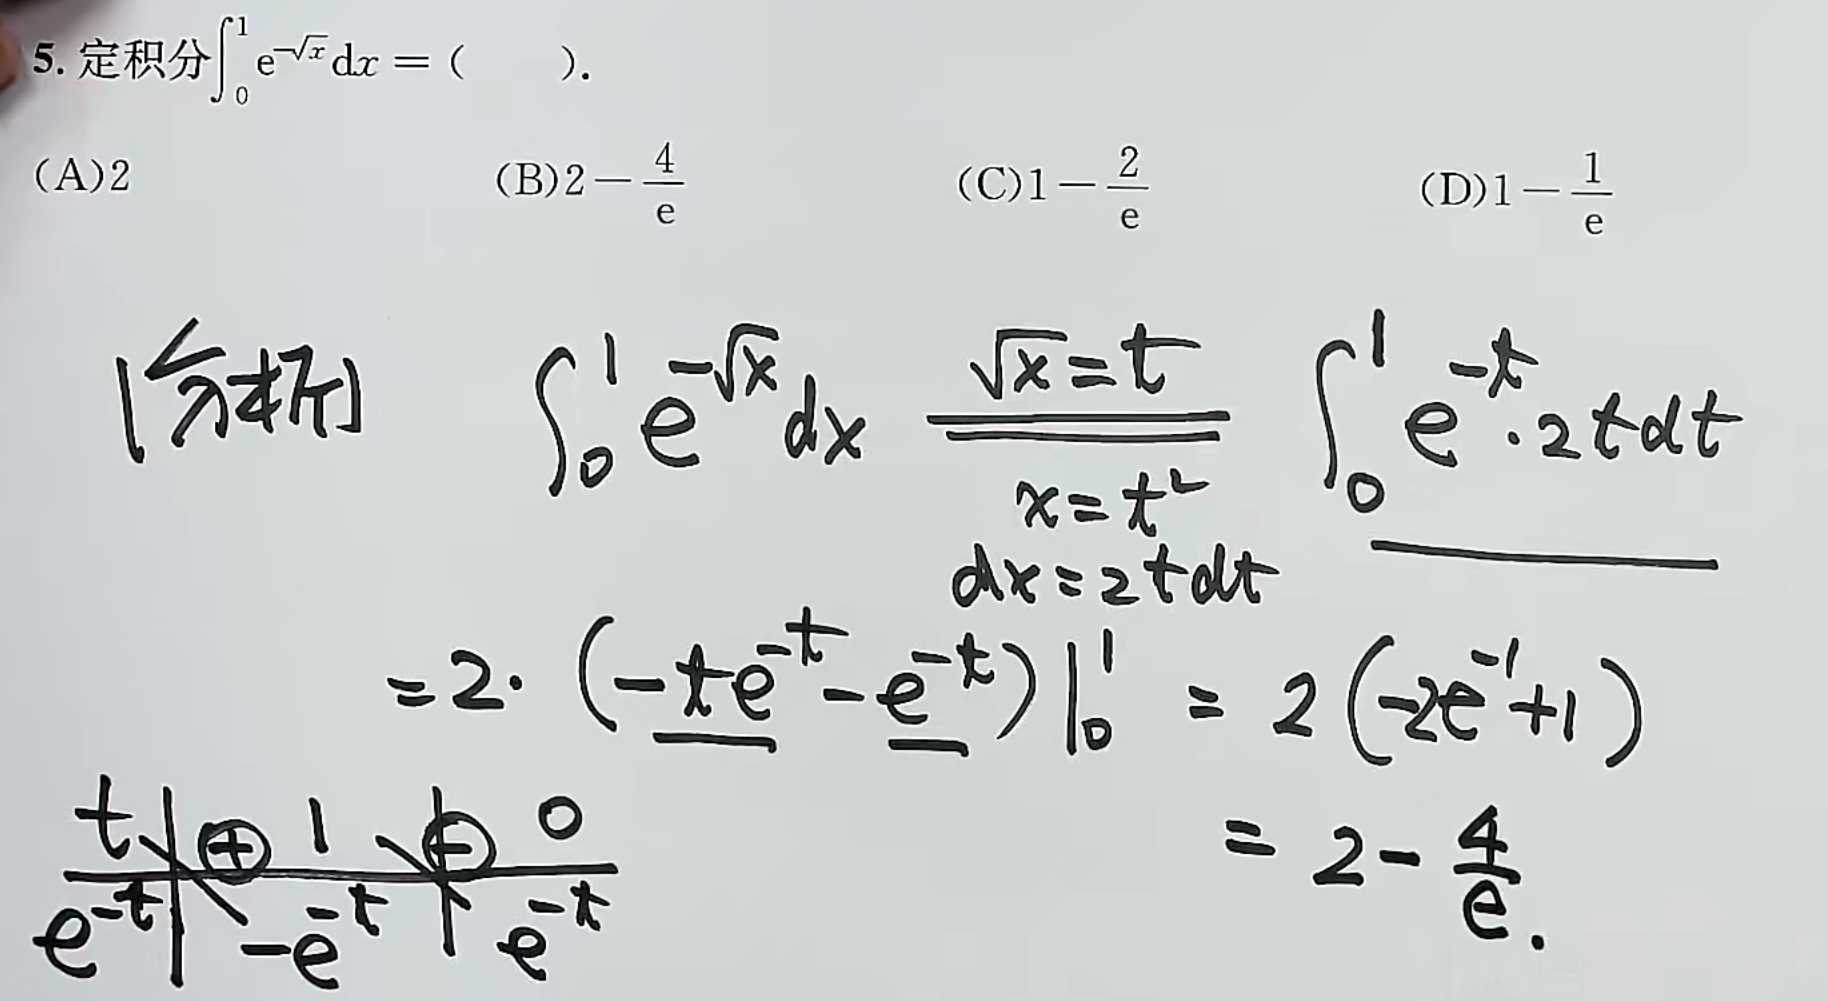 5. 定积分∫₀¹ e^{-√x} dx = (　　).
(A)2　(B)2 - 4/e　(C)1 - 2/e　(D)1 - 1/e
[分析] ∫₀¹ e^{-√x} dx ==(√x = t)== ∫₀¹ e^{-t} · 2t dt
x = t²
dx = 2t dt
= 2 · (-te^{-t} - e^{-t})|₀¹ = 2(-2e^{-1} + 1)
t ⊕ 1 ⊖ 0
e^{-t} -e^{-t} e^{-t}
= 2 - 4/e.